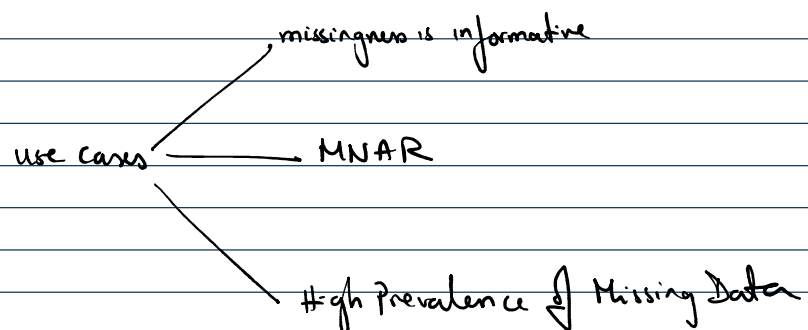 missingness is informative
use cases
MNAR
High Prevalence of Missing Data